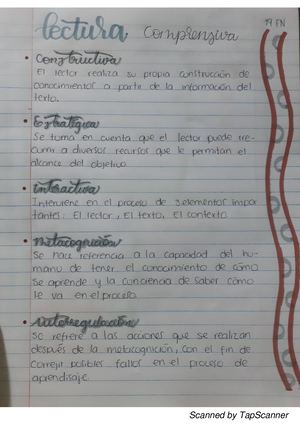 lectura Comprensiva
19 EN
Constructiva
El lector realiza su propia construcción de
conocimientos a partir de la información del
texto.
Estratégica
Se toma en cuenta que el lector puede rre-
currir a diversos recursos que le permitan el
alcance del objetivo.
interactiva
Interviene en el proceso de 3 elementos impor
tantes: El lector, El texto, El contexto.
metacognición
Se hace referencia a la capacidad del hu-
mano de tener el conocimiento de cómo
Se aprende y la conciencia de saber cómo
le va en el proceso
autorregulación
Se refiere a las acciones que se realizan
después de la metacognición, con el fin de
correjir posibles fallos en el proceso de
aprendisaje.
Scanned by TapScanner